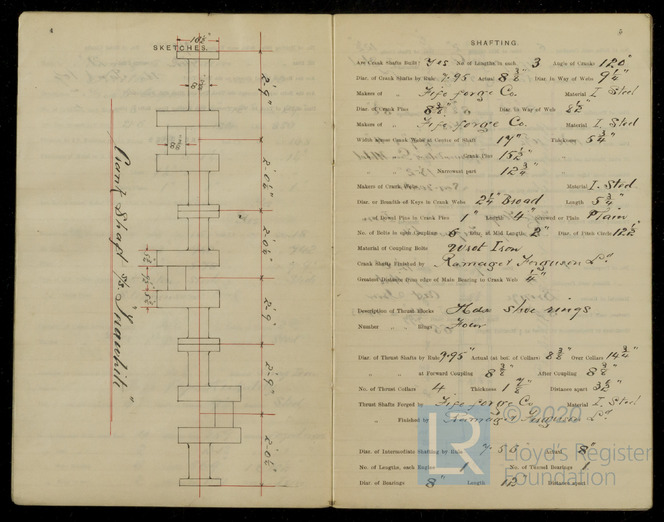 4
SKETCHES.
10½"
2'9"
2'0½"
2'0½"
2'9"
2'9"
2'0½"
Crank Shaft
5
SHAFTING.
Are Crank Shafts Built? Yes No. of Lengths in each 3 Angle of Cranks 120°
Diar. of Crank Shafts by Rule 7.95 Actual Diar. in Way of Webs
Makers of „ „ Fife Forge Co. Material I. Steel
Diar. of Crank Pins Diar. in Way of Webs
Makers of „ Fife Forge Co. Material I. Steel
Width across Crank Webs at Centre of Shaft 17" Thickness 5¾"
„ „ „ Crank Pins 15½"
„ „ „ Narrowest part 12¾"
Makers of Crank Webs Material I. Steel
Diar. or Breadth of Keys in Crank Webs Broad Length
„ of Dowel Pins in Crank Pins 1" Length 4" Screwed or Plain Plain
No. of Bolts in each Coupling 6 Diar. at Mid Length 2" Diar. of Pitch Circle 12½"
Material of Coupling Bolts Wrot Iron
Crank Shafts Finished by Ramage & Ferguson Ld
Greatest Distance from edge of Main Bearing to Crank Web ¼"
Description of Thrust Blocks shoe rings
Number „ „ Rings Four
Diar. of Thrust Shafts by Rule 7.95" Actual (at bot. of Collars) Over Collars 14¾"
„ „ at Forward Coupling After Coupling
No. of Thrust Collars 4 Thickness Distance apart 3½"
Thrust Shafts Forged by Fife Forge Co. Material I. Steel
„ Finished by Ramage & Ferguson Ld
Diar. of Intermediate Shafting by Rule Actual 8"
No. of Lengths, each Engine 1 No. of Tunnel Bearings 1
Diar. of Bearings 8" Length 12 Distance apart
LR
© 2020
Lloyd's Register
Foundation